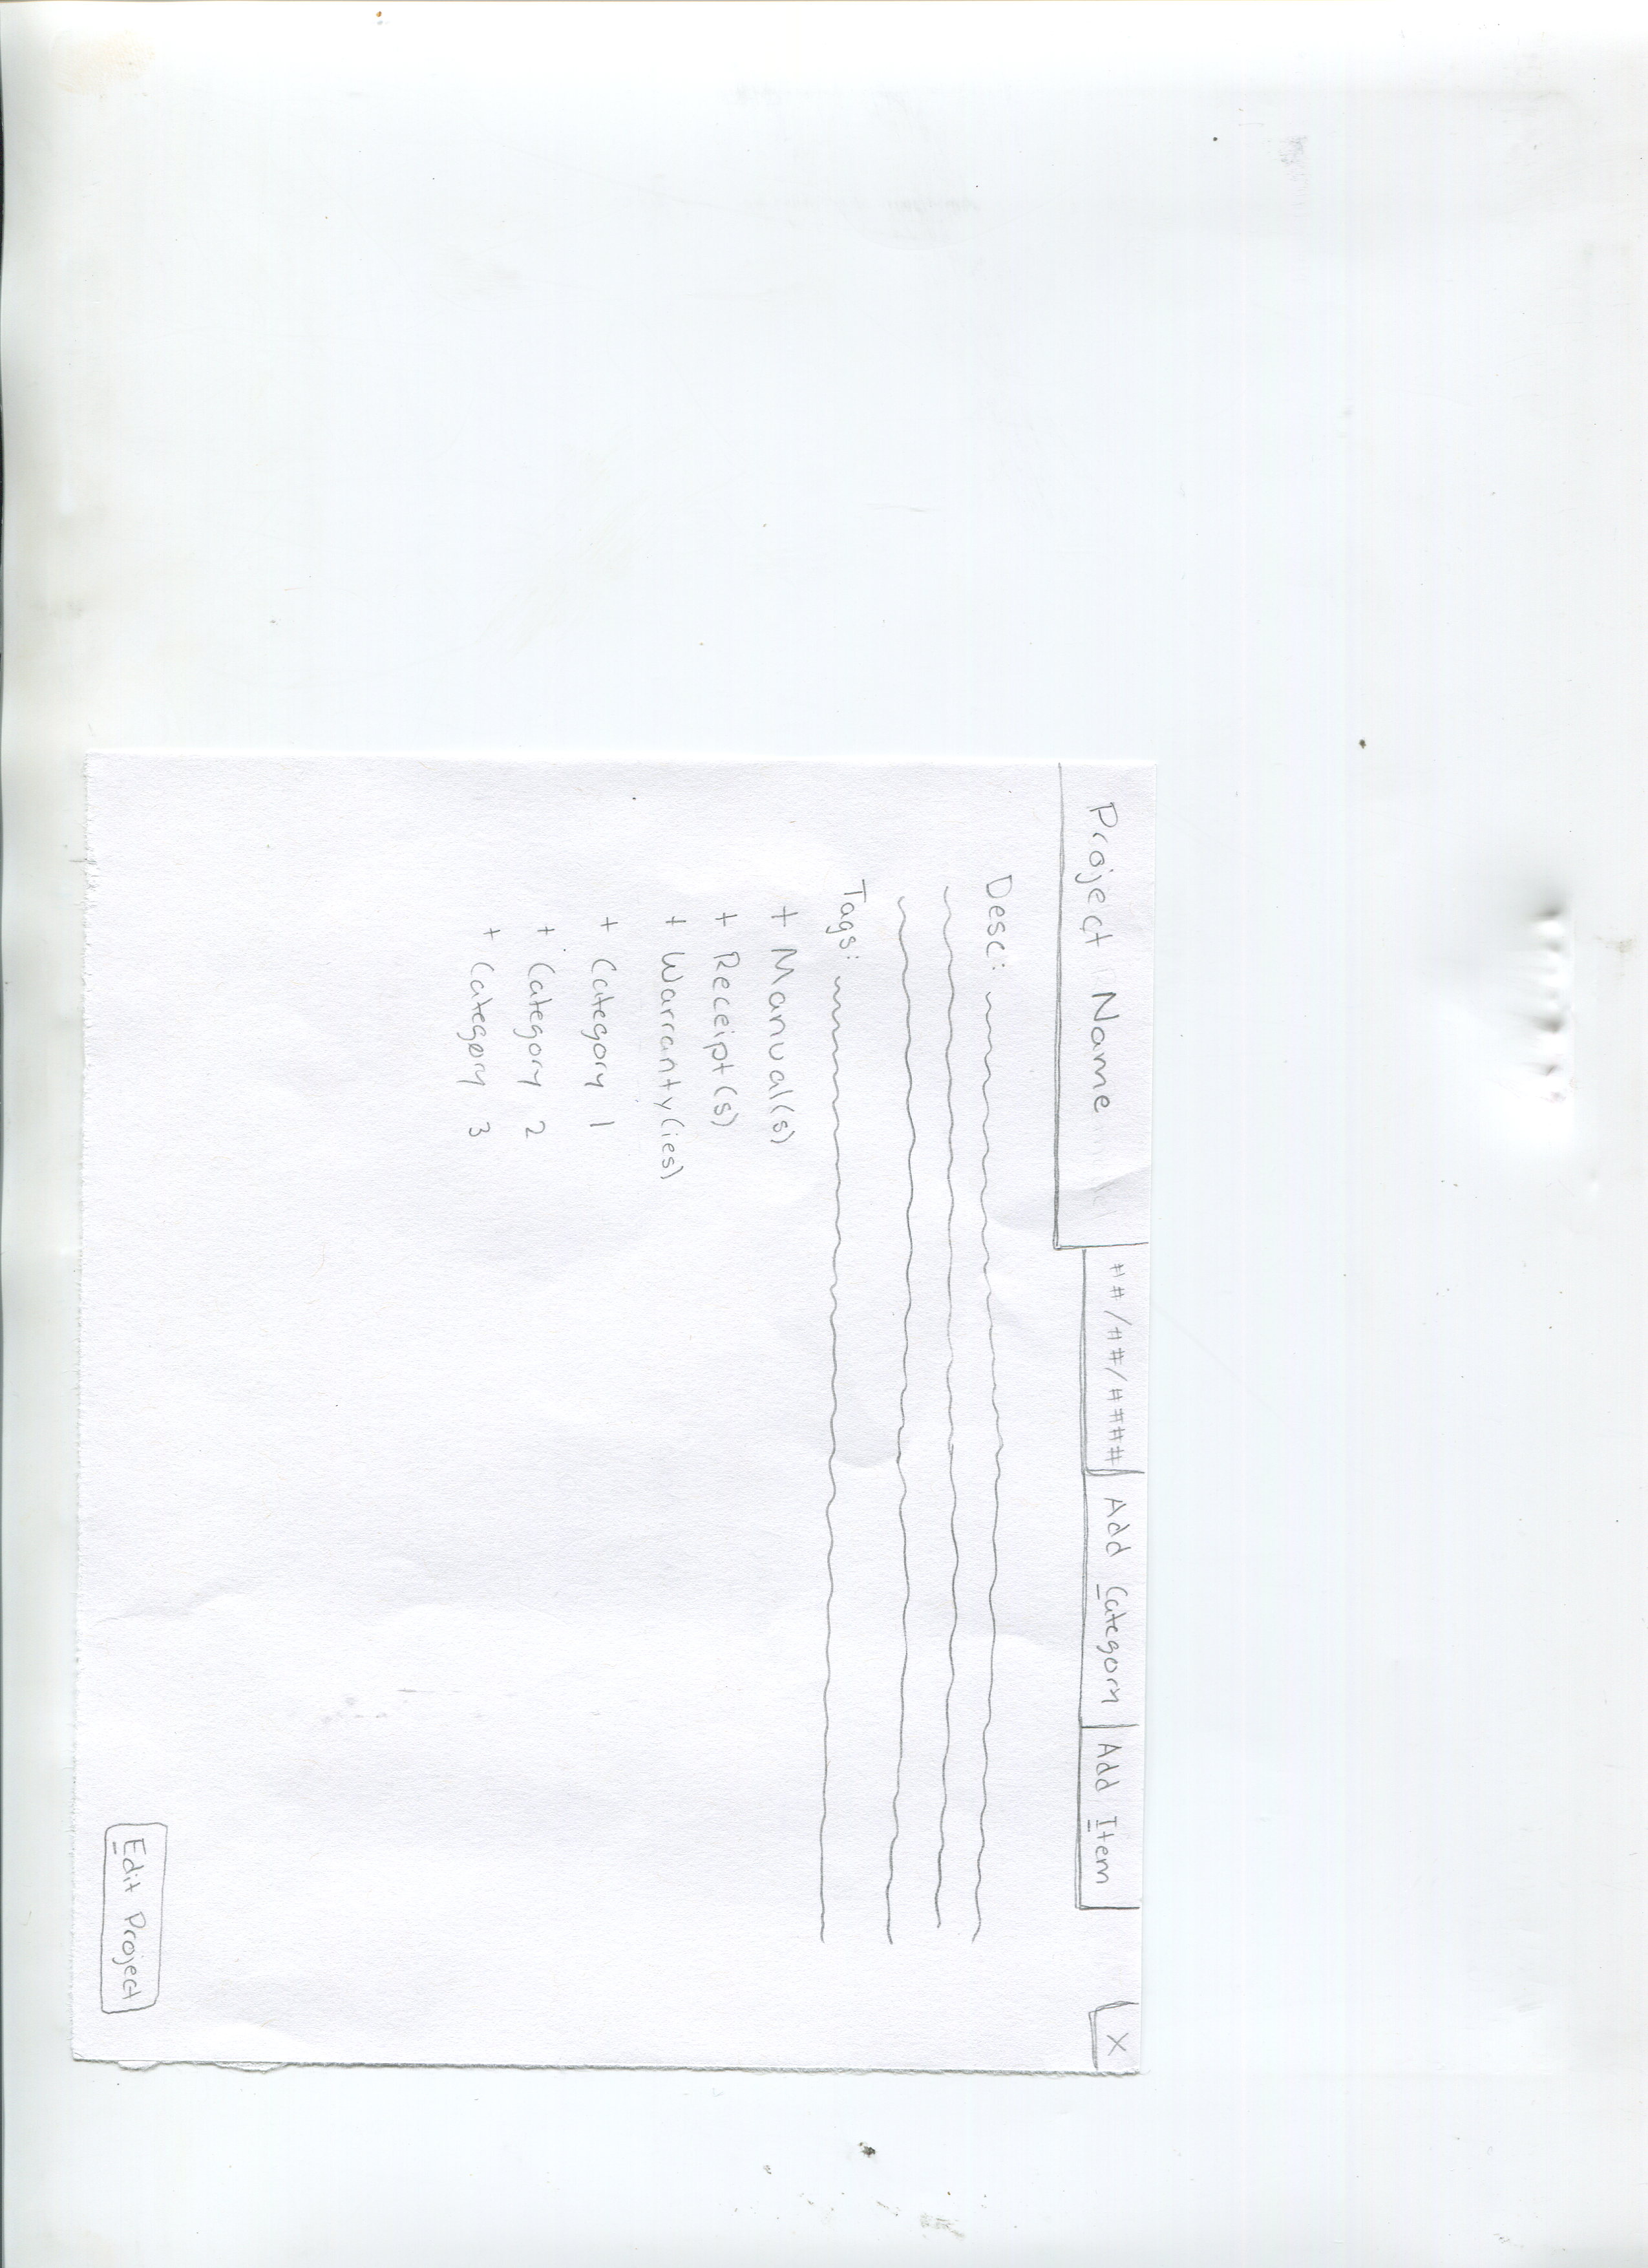 Project Name ##/##/#### Add Category Add Item X
Desc:
Tags:
+ Manual(s)
+ Receipt(s)
+ Warranty(ies)
+ Category 1
+ Category 2
+ Category 3
Edit Project